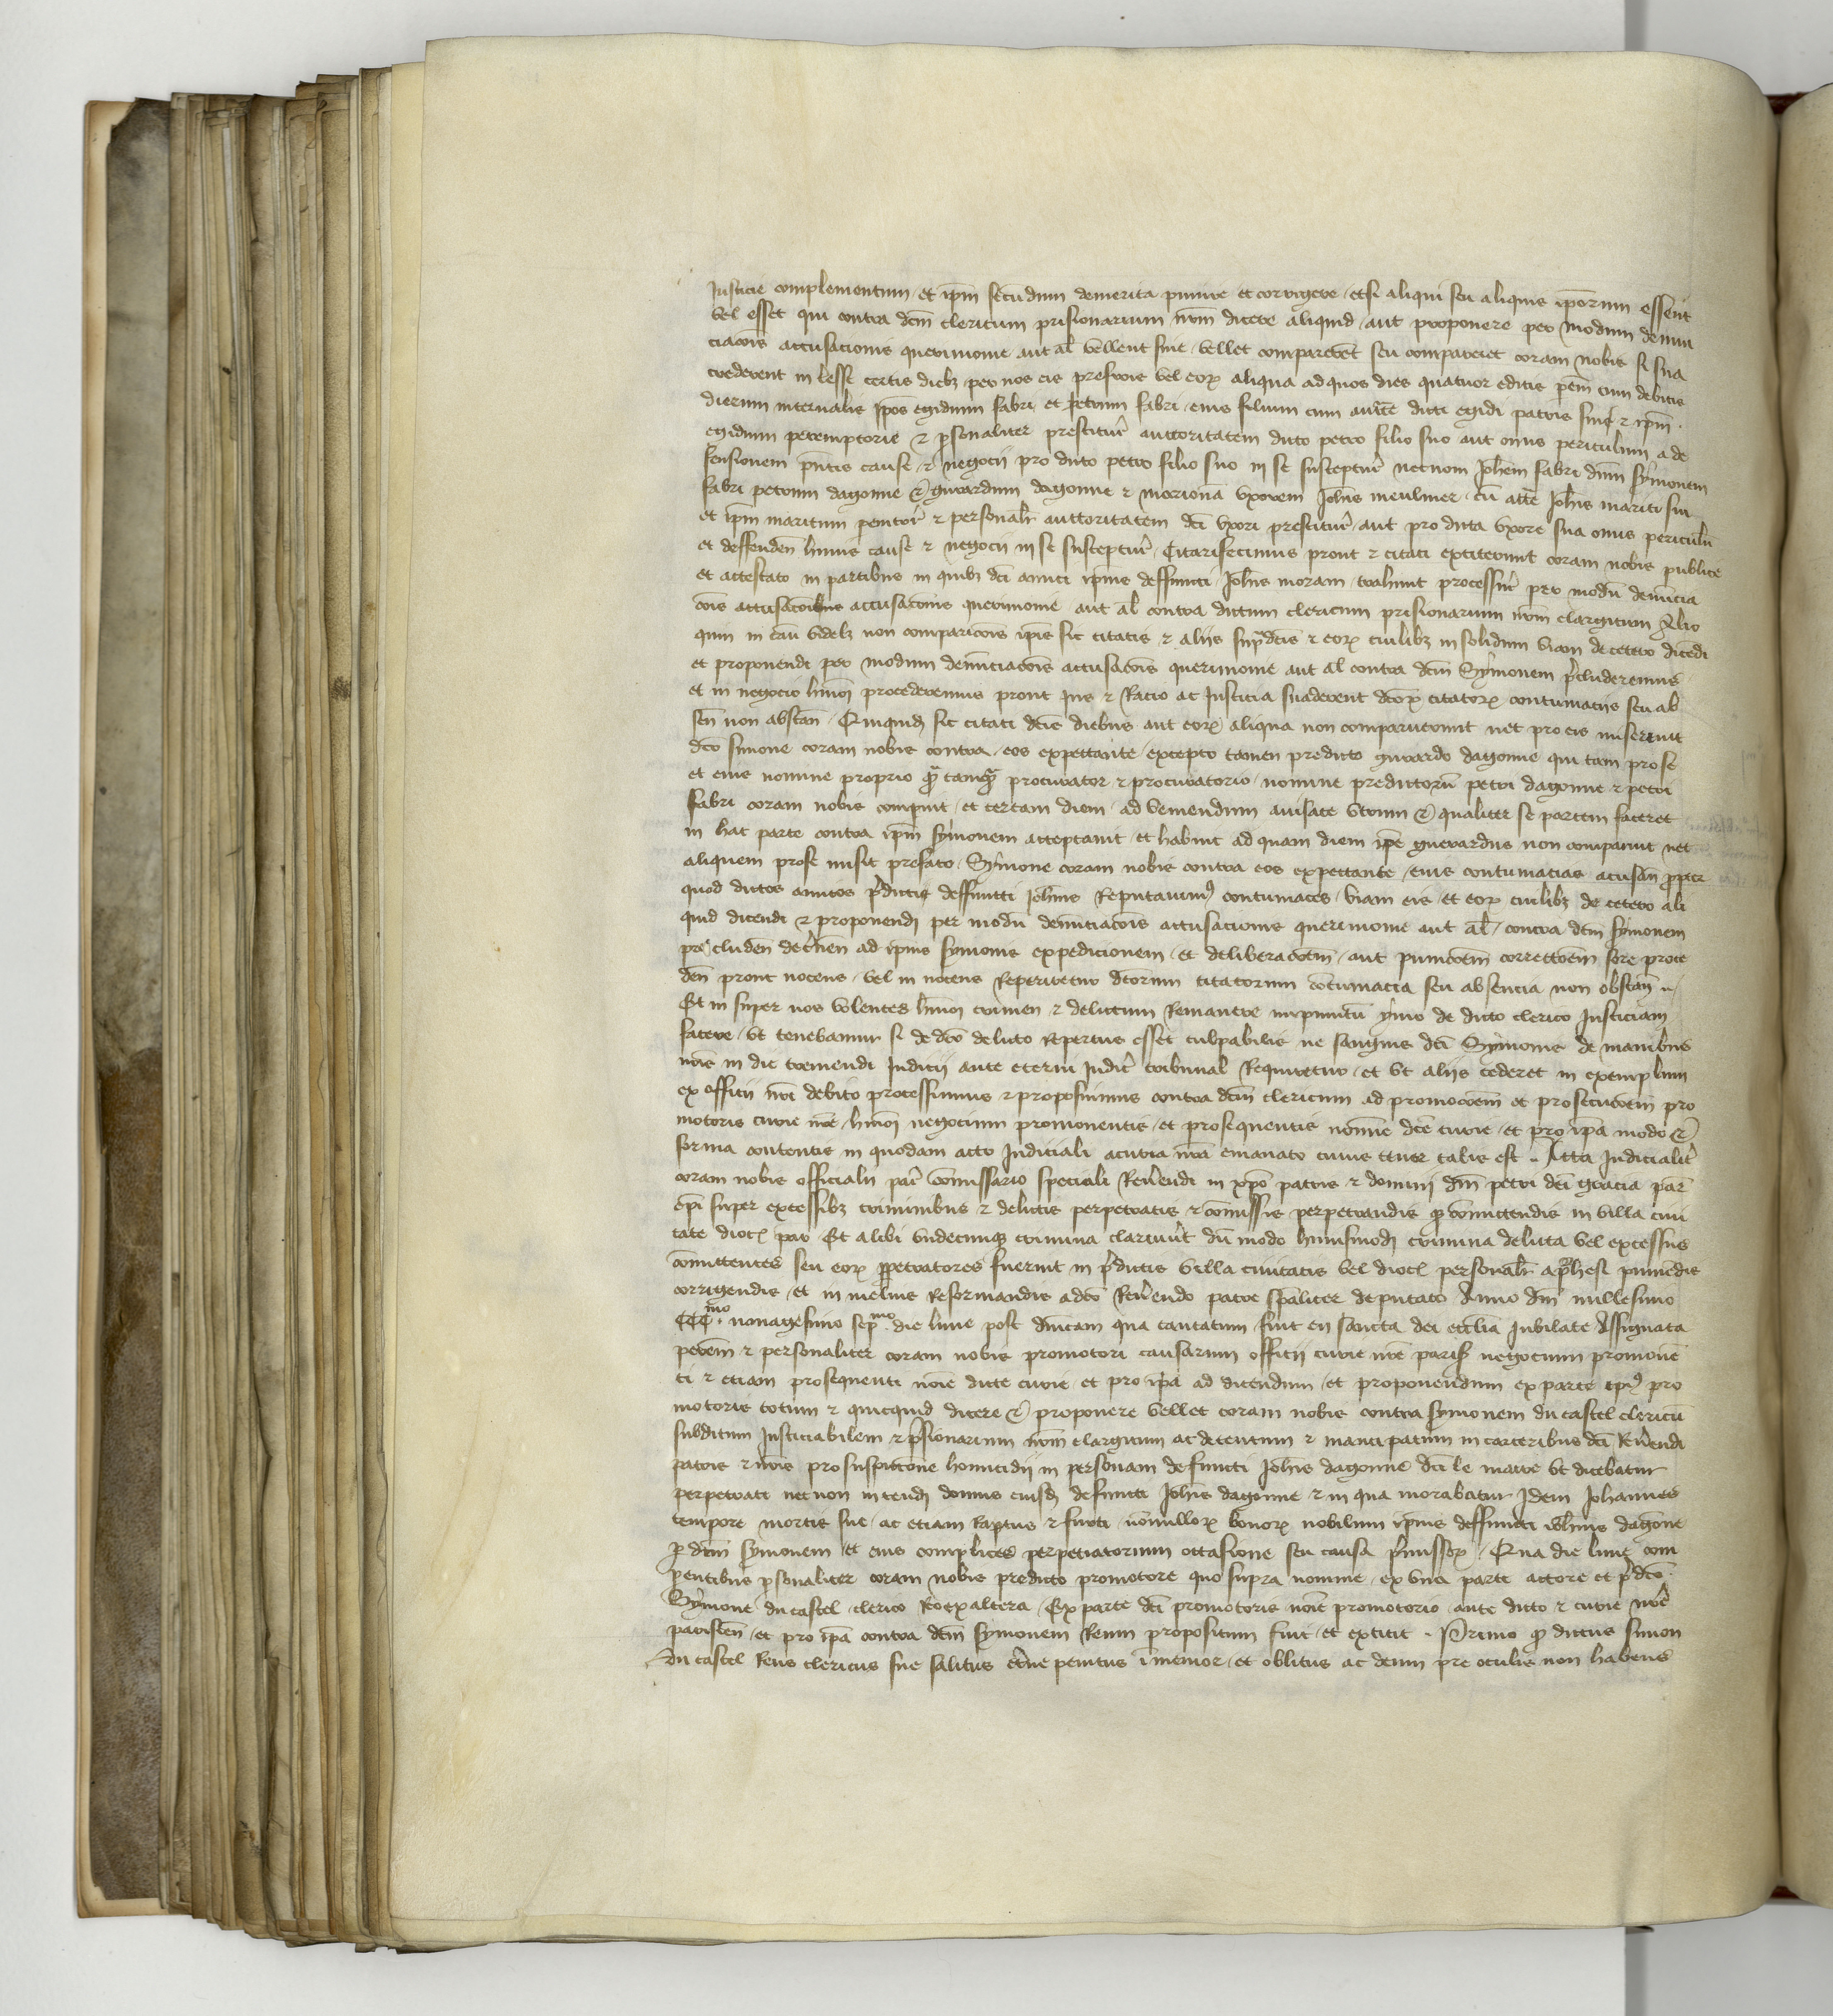 Justicie complementum et ipm secundum demerita punire et corrigere etsi aliqui seu aliquis ipsorum essent
vel esset qui contra dcm clericum prisionarium nrm dicere aliquid aut proponere per modum denun
ciacois accusacionis querimonie aut al vellent sive vellet comparerent seu compareret coram nobis si sua
crederent in lesse certis diebz per nos eis prefixis vel eorum aliqua ad quos dies quatuor edictis pem cum debitis
dierum intervalis Ipos egidium fabri et petrum fabri eius filium cum auctte dicti egidi patris sui et ipm
egidium peremptorie et personaliter prestitur auctoritatem dicto petro filio suo aut onus periculum a de
fensionem pntis cause et negocii pro dicto petro filio suo in se suscepturum necnon Johem fabri dnm Symonem
fabri petrum dagonne et guerardum dagonne et marionam uxorem Johis meulmer cu actte Johis mariti sui
et ipm maritum pemtor et personalr auctoritatem dci uxori prestitur aut pro dicta uxore sua onus periculu
et deffenden huius cause et negocii in se susceptur Citarifecimus prout et citati extiterunt coram nobis publice
et attestato in partibus in quibz dci amici ipius deffuncti Johis moram trahunt processur per modu denuncia
cois accusacoibus accusacionis querimonie aut al contra dictum clericum prisionarium nrm elargitum Alio
quin in eam videlz non comparicois ipis sic citatis et aliis supradictis et eorum cuilibz in solidum viam de cetero dicedi
et proponendi per modum denuncciacois accusacois querimonie aut al contra dcm Symonem precluderemus
et in negocio hmoi procederemus prout Jus et Racio ac Justicia suaderent dcorum citatorum contumaciis seu ab
sen non abstan Quiquidem sic citati dcis diebus aut eorum aliqua non comparuerunt nec pro eis miserunt
dco simone coram nobis contra eos expectante excepto tamen predicto guerardo dagonne qui tam pro se
et eius nomine proprio quam tamquam procurator et procuratorio nomine predictorum petri dagonne et petri
fabri coram nobis compuit et certam diem ad veniendum avisate utrum et qualiter se partem faceret
in hac parte contra ipm symonem acceptavit et habuit ad quam diem ipe guerardus non comparuit nec
aliquem pro se misit prefato Symone coram nobis contra eos expectante eius contumacias acusan propter
quod dictos amicos predicti deffuncti Johnis Reputavimus contumaces viam eis et eorum cuilibz de cetero ali
quid dicendi et proponendi per modu denunciacois accusacionis querimonie aut al contra dcm Symonem
precluden decernen ad ipius symonis expedicionem et deliberacoem aut punicoem correctoem fore proce
den prout nocens vel in nocens Reperiretur dcorum citatorum cotumacia seu absencia non obstan
Et in super nos volentes hmoi crimen et delictum Remanere impunitu ymo de dicto clerico Justiciam
facere ut tenebamur si de dco delicto repertus esset culpabilis ne sanguis dci Symonis de manibus
nris in die tremendi Judicii ante eterni Judicis tribunal Requiretur et ut aliis cederet in exemplum
ex officii nri debito processimus et proposuimus contra dcm clericum ad promocoem et prosecucoem pro
motoris curie nre hmoi negocium promoventis et prosequentis nomine dce curie et pro ipa modo et
forma contentis in quodam acto Judiciali a curia nra emanato cuius tenor talis est Acta Judicialit
coram nobis officiali par comissario speciali Reverendi in xpo patris et domini dni petri dei gracia par
epi super excessibz criminibus et delictis perpetratis et comissis perpetrandis et comittendis in villa civi
tate dioc par Et alibi undecunqz crimina clarverit dum modo huiusmodi crimina delicta vel excessus
comittentes seu eorum perpetratores fuerint in predictis villa civitatis vel dioc personalr aprehesi puniedis
corrigendis et in melius Reformandis a dco Reverendo patre specialiter deputato Anno dni millesimo
CCCmo nonagesimo sepmo die lune post dnicam qua cantatum fuit en sancta dei ecclia Jubilate Assignata
perem et personaliter coram nobis promotori causarum officii curie nre paris negocium promove
ti et etiam prosequenti noie dicte curie et pro ipa ad dicendum et proponendum ex parte ipius pro
motoris totum et quicquid dicere et proponere vellet coram nobis contra symonem du castel clericu
subditum Justiciabilem et prisionarium nrm elargitum ac detentum et mancipatum in carceribus dci Reverendi
patris et nris pro suspicione homicidii in personam defuncti Johis dagonne dci le maire ut dicebatur
perpetrati nec non incendii domus eiusdem defuncti Johis dagonne et in qua morabatur Idem Johannes
tempore mortis sue ac etiam Raptus et furti nonnullorum bonorum nobilium ipius deffuncti iohnis dagone
per dcm symonem et eius complices perpetratorum occasione seu causa premissorum Qua die lune com
parentibus personaliter coram nobis predicto promotore quo supra nomine ex una parte actore et predco
Symone du castel clerico Reo ex altera Ex parte dci promotoris noie promotorio ante dicto et curie nre
parisien et pro ipa contra dcm symonem Reum propositum fuit et extitit Primo quod dictus simon
du castel Reus clericus sue salutis eterne penitus immemor et oblitus ac deum pre oculis non habens